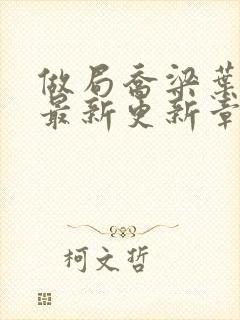 做局乔梁葉
最新更新章
柯文哲